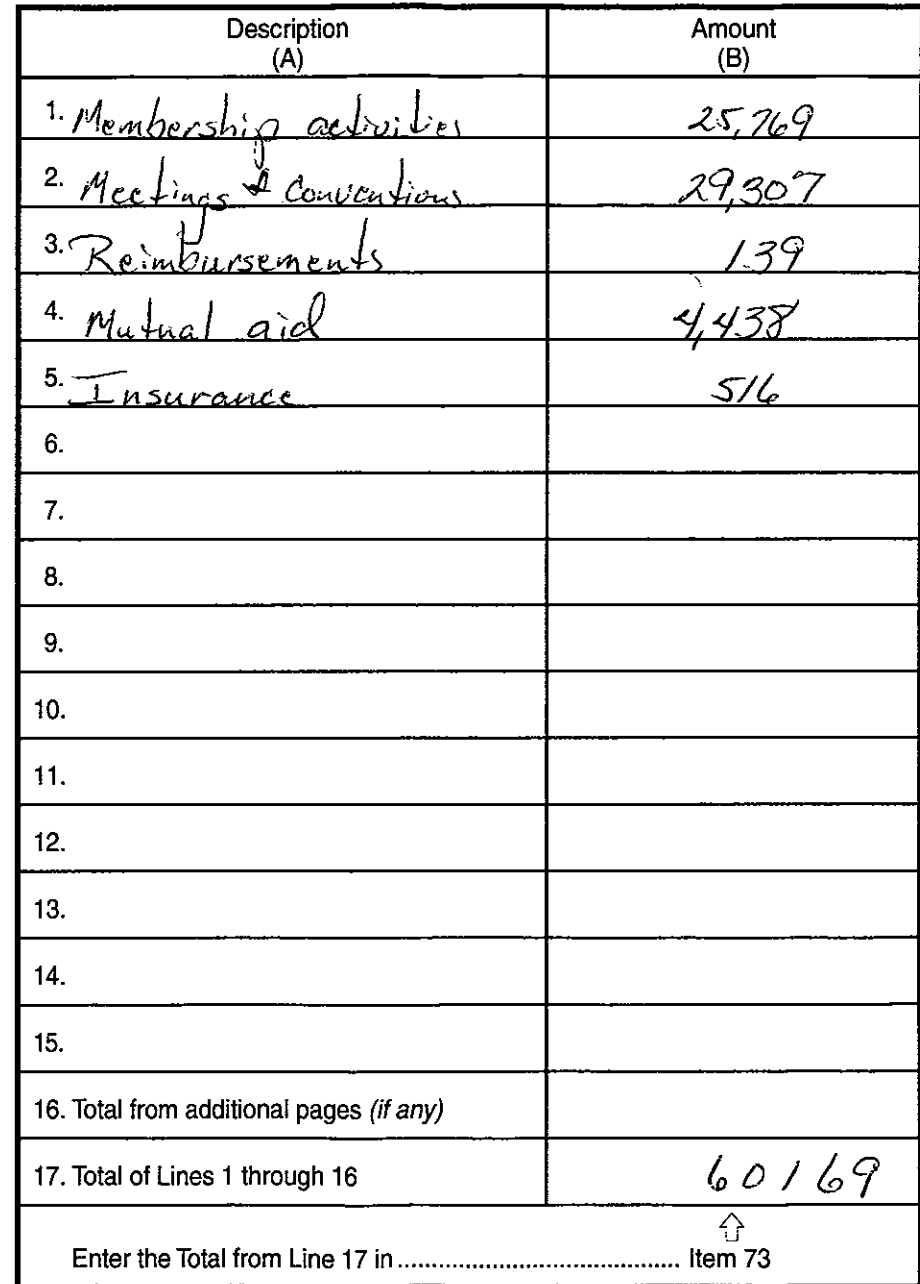 Description
(A)
Amount
(B)
1. Membership activities 25,769
2. Meetings & Conventions 29,307
3. Reimbursements 139
4. Mutual aid 4,438
5. Insurance 516
6.
7.
8.
9.
10.
11.
12.
13.
14.
15.
16. Total from additional pages (if any)
17. Total of Lines 1 through 16 60169
Enter the Total from Line 17 in ............................................ Item 73